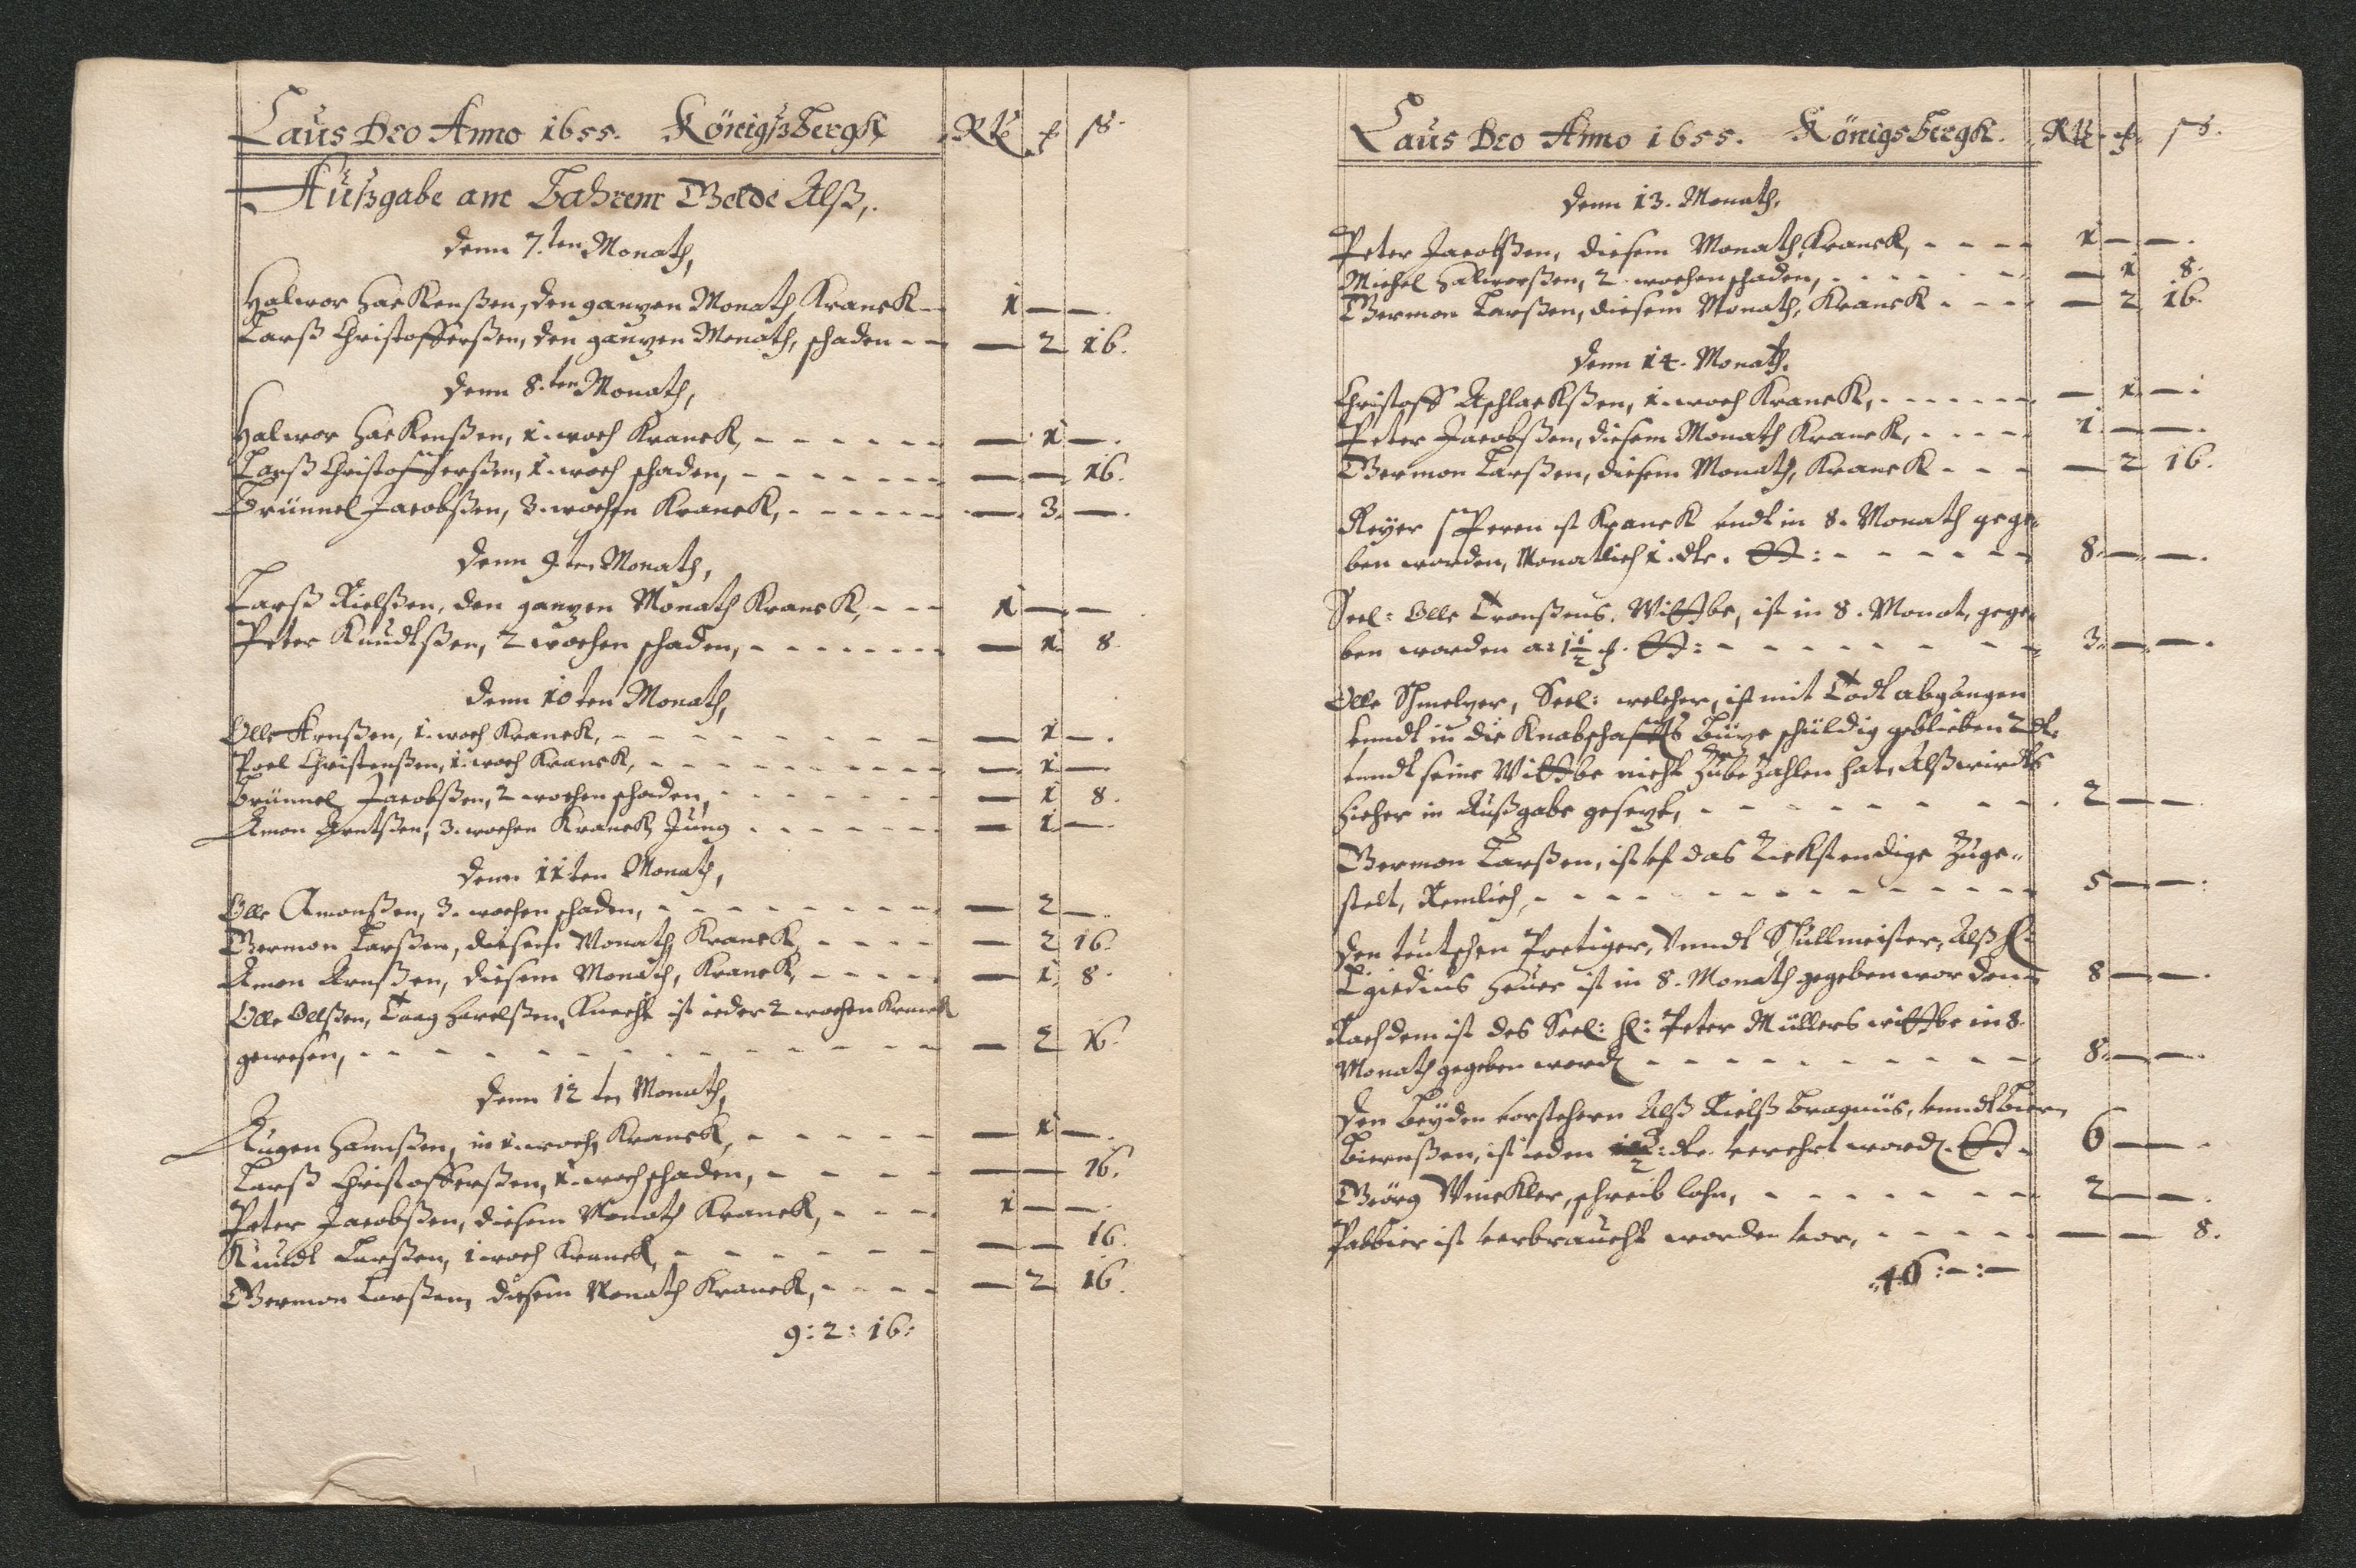 Laus Deo Anno 1655. Königßbergk Rtl. ß.
Außgabe ann Bahrem Gelde Alß,
Denn 7.ten Monath,
Halwor Hackenßen, den ganzen Monath Kranck - 1 — —
Larß Christofferßen, den ganzen Monath, schaden - - — 2 16.
Denn 8.ten Monath,
Halwor Hackenßen, 1. woch Kranck, - - - - - — 1 —.
Larß Christofferßen, 1. woch schaden, - - - - - - — — 16.
Brünnel Jacobßen, 3. wochen Kranck, - - - - - — 3. —.
Denn 9 ten Monath,
Larß Nielßen, den ganzen Monath Kranck, - - - 1 — —
Peter Knudtßen, 2 wochen schaden, - - - - - - - — 1. 8.
Denn 10 ten Monath,
Olle Arnßen, 1. woch Kranck, - - - - - - - - — 1 —.
Poel Christenßen, 1. woch Kranck, - - - - - - - - — 1 —
Brünnel Jacobßen, 2 wochen schaden, - - - - - - - — 1 8.
Amon Arntßen, 3. wochen Kranck Jung - - - - - - — 1 —
Denn 11 ten Monath,
Olle Amonßen, 3. wochen schaden, - - - - - - - - — 2 —.
Germon Larßen, diesem Monath Kranck, - - - - — 2 16.
Amon Arnßen, diesem Monath, Kranck, - - - - - — 1. 8.
Olle Olßen, Taag Harelßen, Knecht ist ieder 2 wochen Kranck
gewesen, - - - - - - - - - - - - - — 2 16.
Denn 12 ten Monath,
Augen Hannßen, in 1. woch, Kranck, - - - - - — 1 —.
Larß Christofferßen, 1. woch schaden, - - - - — — 16.
Peter Jacobßen, diesem Monath Kranck, - - - - 1 — —.
Knudt Larßen, 1 woch Kranck, - - - - - - - — — 16.
Germon Larßen, diesem Monath Kranck, - - - - — 2 16.
9: 2: 16:
Laus Deo Anno 1655. Königsbergk. Rtl. ß.
Denn 13. Monath,
Peter Jacobßen, diesem Monath, Kranck, - - - - 1 — —.
Michel Halworßen, 2. wochen schaden, - - - - - - — 1 8.
Germon Larßen, diesem Monath, Kranck - - - - — 2 16.
Denn 14. Monath.
Christoff Aschlackßen, 1. woch Kranck, - - - - - - — 1. —.
Peter Jacobßen, diesem Monath Kranck, - - - - 1. — —.
Germon Larßen, diesem Monath, Kranck - - - — 2 16.
Reÿer ist Kranck undt in 8. Monath gege-
ben worden, Monatlich 1. dlr. - - - - - - - 8. — —.
Seel: Olle Tronßens. Wittbe, ist in 8. Monat, gege-
ben worden a: 1 1/2 - - - - - - - - 3. — —.
Olle Schmelzer, Seel: welcher, ist mit Todt abgangen
unndt in die Knabschaffts Büxe schüldig geblieben 2 dlr.
unndt seine Wittbe nicht Zube Zahlen hat, Alß wirdts
hieher in Außgabe gesezt, - - - - - - - - - 2 — —
Germon Larßen, ist uf das Rickstendige Zuge-
stelt, Nemlich, - - - - - - - - - - - - - - 5 — —:
Den teutschen Pretiger, Vnndt Schullmeister, Alß H:
Egidius ist in 8. Monath gegeben worden 8 — —.
Nachdem ist des Seel: H: Peter Müllers wittbe in 8.
Monath gegeben word - - - - - - - - - - - 8. — —.
Den Beÿden vorstehern Alß Nielß Bragniis, vnndt Biörn
Biernßen, ist ieden dlr. verehrt word. 6 — — .
Geörg Winckler, schreib lohn, - - - - - - - - 2 — —.
Pabbier ist verbraucht worden vor, - - - - - - — — 8.
46: — : —